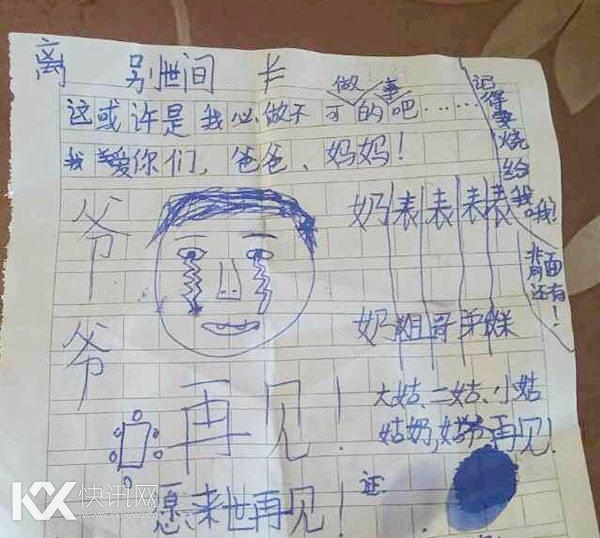 离 别世间
这或许是我必做不可的吧……
我爱你们，爸爸、妈妈！
记得要烧给我哦！
背面还有！
爷爷
奶表表表表
奶姐哥弟妹
再见！
大姑、二姑、小姑
姑奶，姑爷再见！
愿来世再见！
证
KX 快讯网